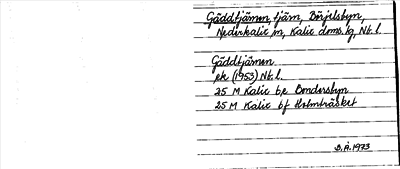 Gäddtjärnen, tjärn, Börjelsbyn,
Nederkalix sn, Kalix doms. lg, Nb. l.
Gäddtjärnen
ek (1953) Nb. l.
25 M Kalix 6e Bondersbyn
25 M Kalix 6f Holmträsket
B.A. 1973